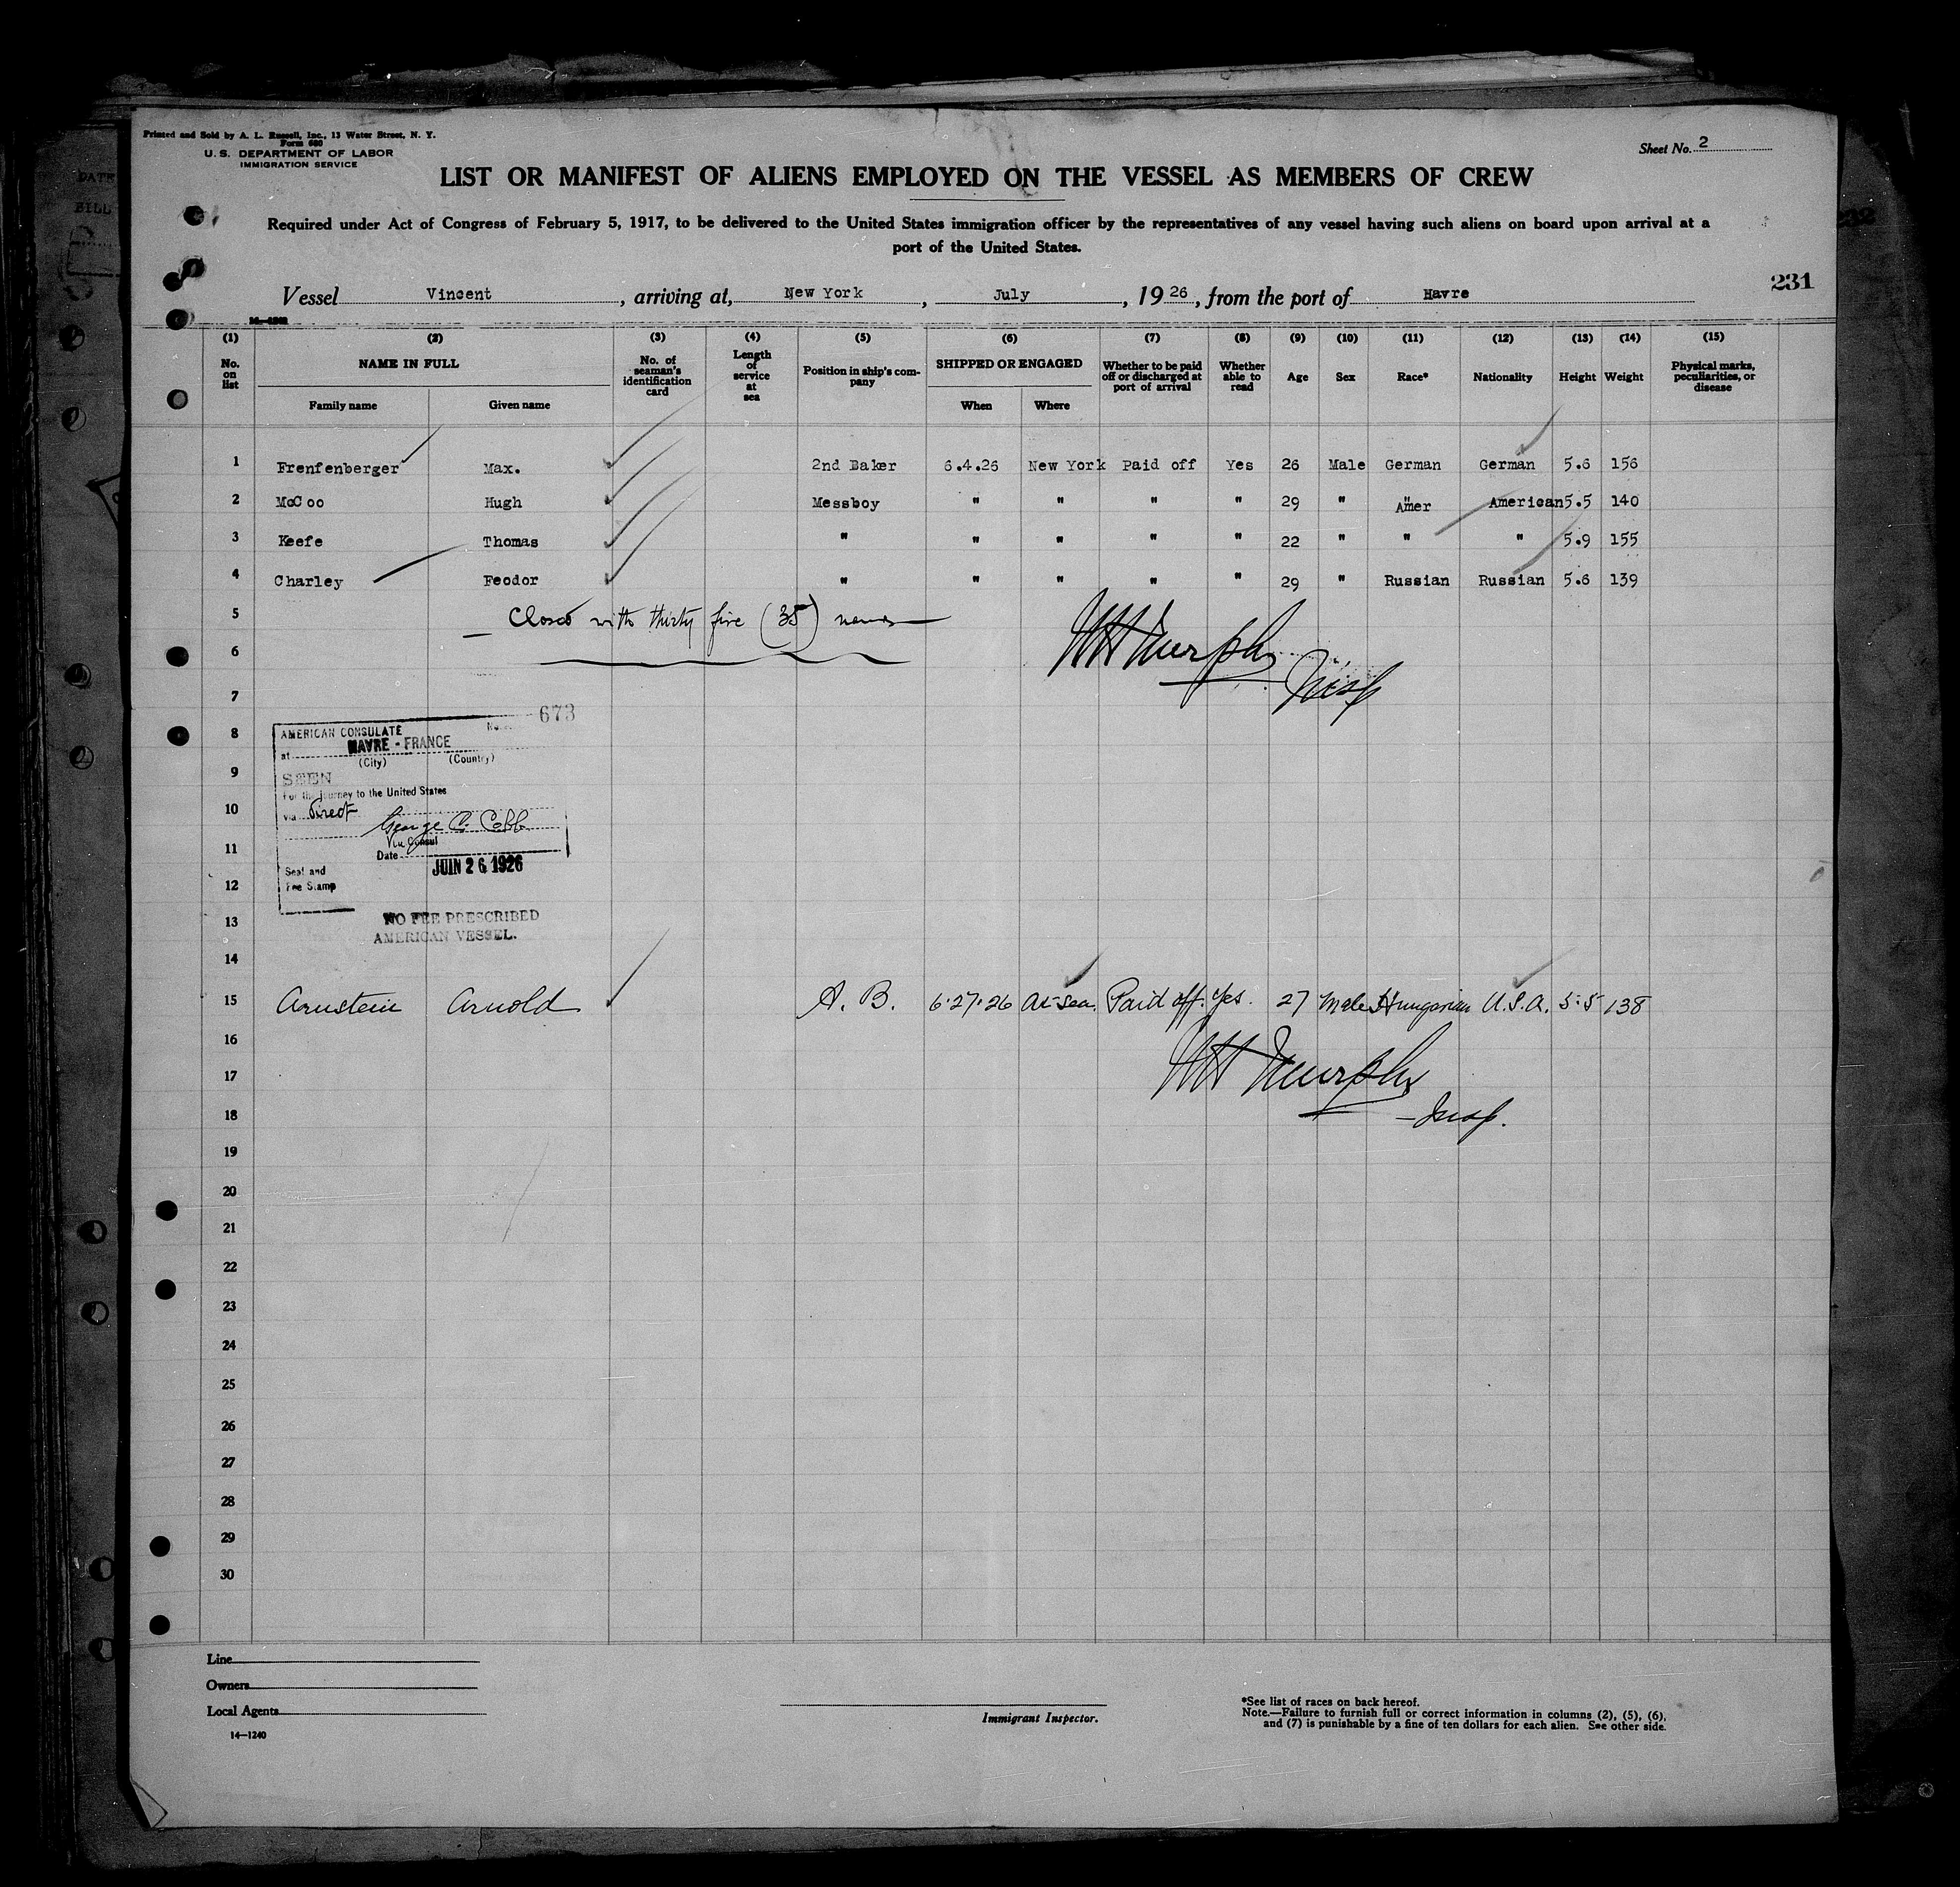 Printed and Sold by A. L. Russell, Inc., 13 Water Street, N. Y.
Form 680
U. S. DEPARTMENT OF LABOR
IMMIGRATION SERVICE
Sheet No. 2
LIST OR MANIFEST OF ALIENS EMPLOYED ON THE VESSEL AS MEMBERS OF CREW
Required under Act of Congress of February 5, 1917, to be delivered to the United States immigration officer by the representatives of any vessel having such aliens on board upon arrival at a
port of the United States.
231
Vessel Vincent, arriving at, New York, July, 19 26, from the port of Havre
(1) (2) (3) (4) (5) (6) (7) (8) (9) (10) (11) (12) (13) (14) (15)
No. on list
NAME IN FULL
Family name
Given name
No. of seaman's identification card
Length of service at sea
Position in ship's company
SHIPPED OR ENGAGED
When
Where
Whether to be paid off or discharged at port of arrival
Whether able to read
Age
Sex
Race*
Nationality
Height
Weight
Physical marks, peculiarities, or disease
1 Frenfenberger Max. 2nd Baker 6.4.26 New York Paid off Yes 26 Male German German 5.6 156
2 McCoo Hugh Messboy " " " " 29 " Amer American 5.5 140
3 Keefe Thomas " " " " " 22 " " " 5.9 155
4 Charley Feodor " " " " " 29 " Russian Russian 5.6 139
5 Closed with thirty five (35) names
6 Murphy
7 Insp
8
9
10
11
12
13
14
673
AMERICAN CONSULATE No.
at HAVRE - FRANCE
(City) (Country)
SEEN
For the journey to the United States
via Direct
George C. Cobb
Vice Consul
Date JUIN 26 1926
Seal and
Fee Stamp
NO FEE PRESCRIBED
AMERICAN VESSEL.
15 Arnstein Arnold A. B. 6.27.26 At-sea. Paid off. Yes. 27 Male Hungarian U.S.A. 5:5 138
16
17 Murphy
18 Insp.
19
20
21
22
23
24
25
26
27
28
29
30
Line
Owners
Local Agents
14—1240
Immigrant Inspector.
*See list of races on back hereof.
Note.—Failure to furnish full or correct information in columns (2), (5), (6),
and (7) is punishable by a fine of ten dollars for each alien. See other side.